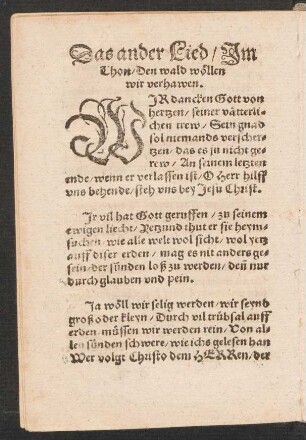 Das ander Lied / Im
Thon / Den wald wöllen
wir verhawen.
WIR dancken Gott von
hertzen / seiner vätterli-
chen trew / Sein gnad
sol niemands verscher-
tzen / das es jn nicht ge-
rew / An seinem letzten
ende / wenn er verlassen ist / O Herr hilff
vns behende / steh vns bey Jesu Christ.
Ir vil hat Gott geruffen / zu seinem
ewigen liecht / Yetzund thut er sie heym-
suchen / wie alle welt wol sicht / wol yetz
auff diser erden / mag es nit anders ge-
sein / der sünden loß zu werden / deñ nur
durch glauben vnd pein.
Ja wöll wir selig werden / wir seynd
groß oder kleyn / Durch vil trübsal auff
erden / müssen wir werden rein / Von al-
len sünden schwere / wie ichs gelesen han
Wer volgt Christo dem HERRen / der